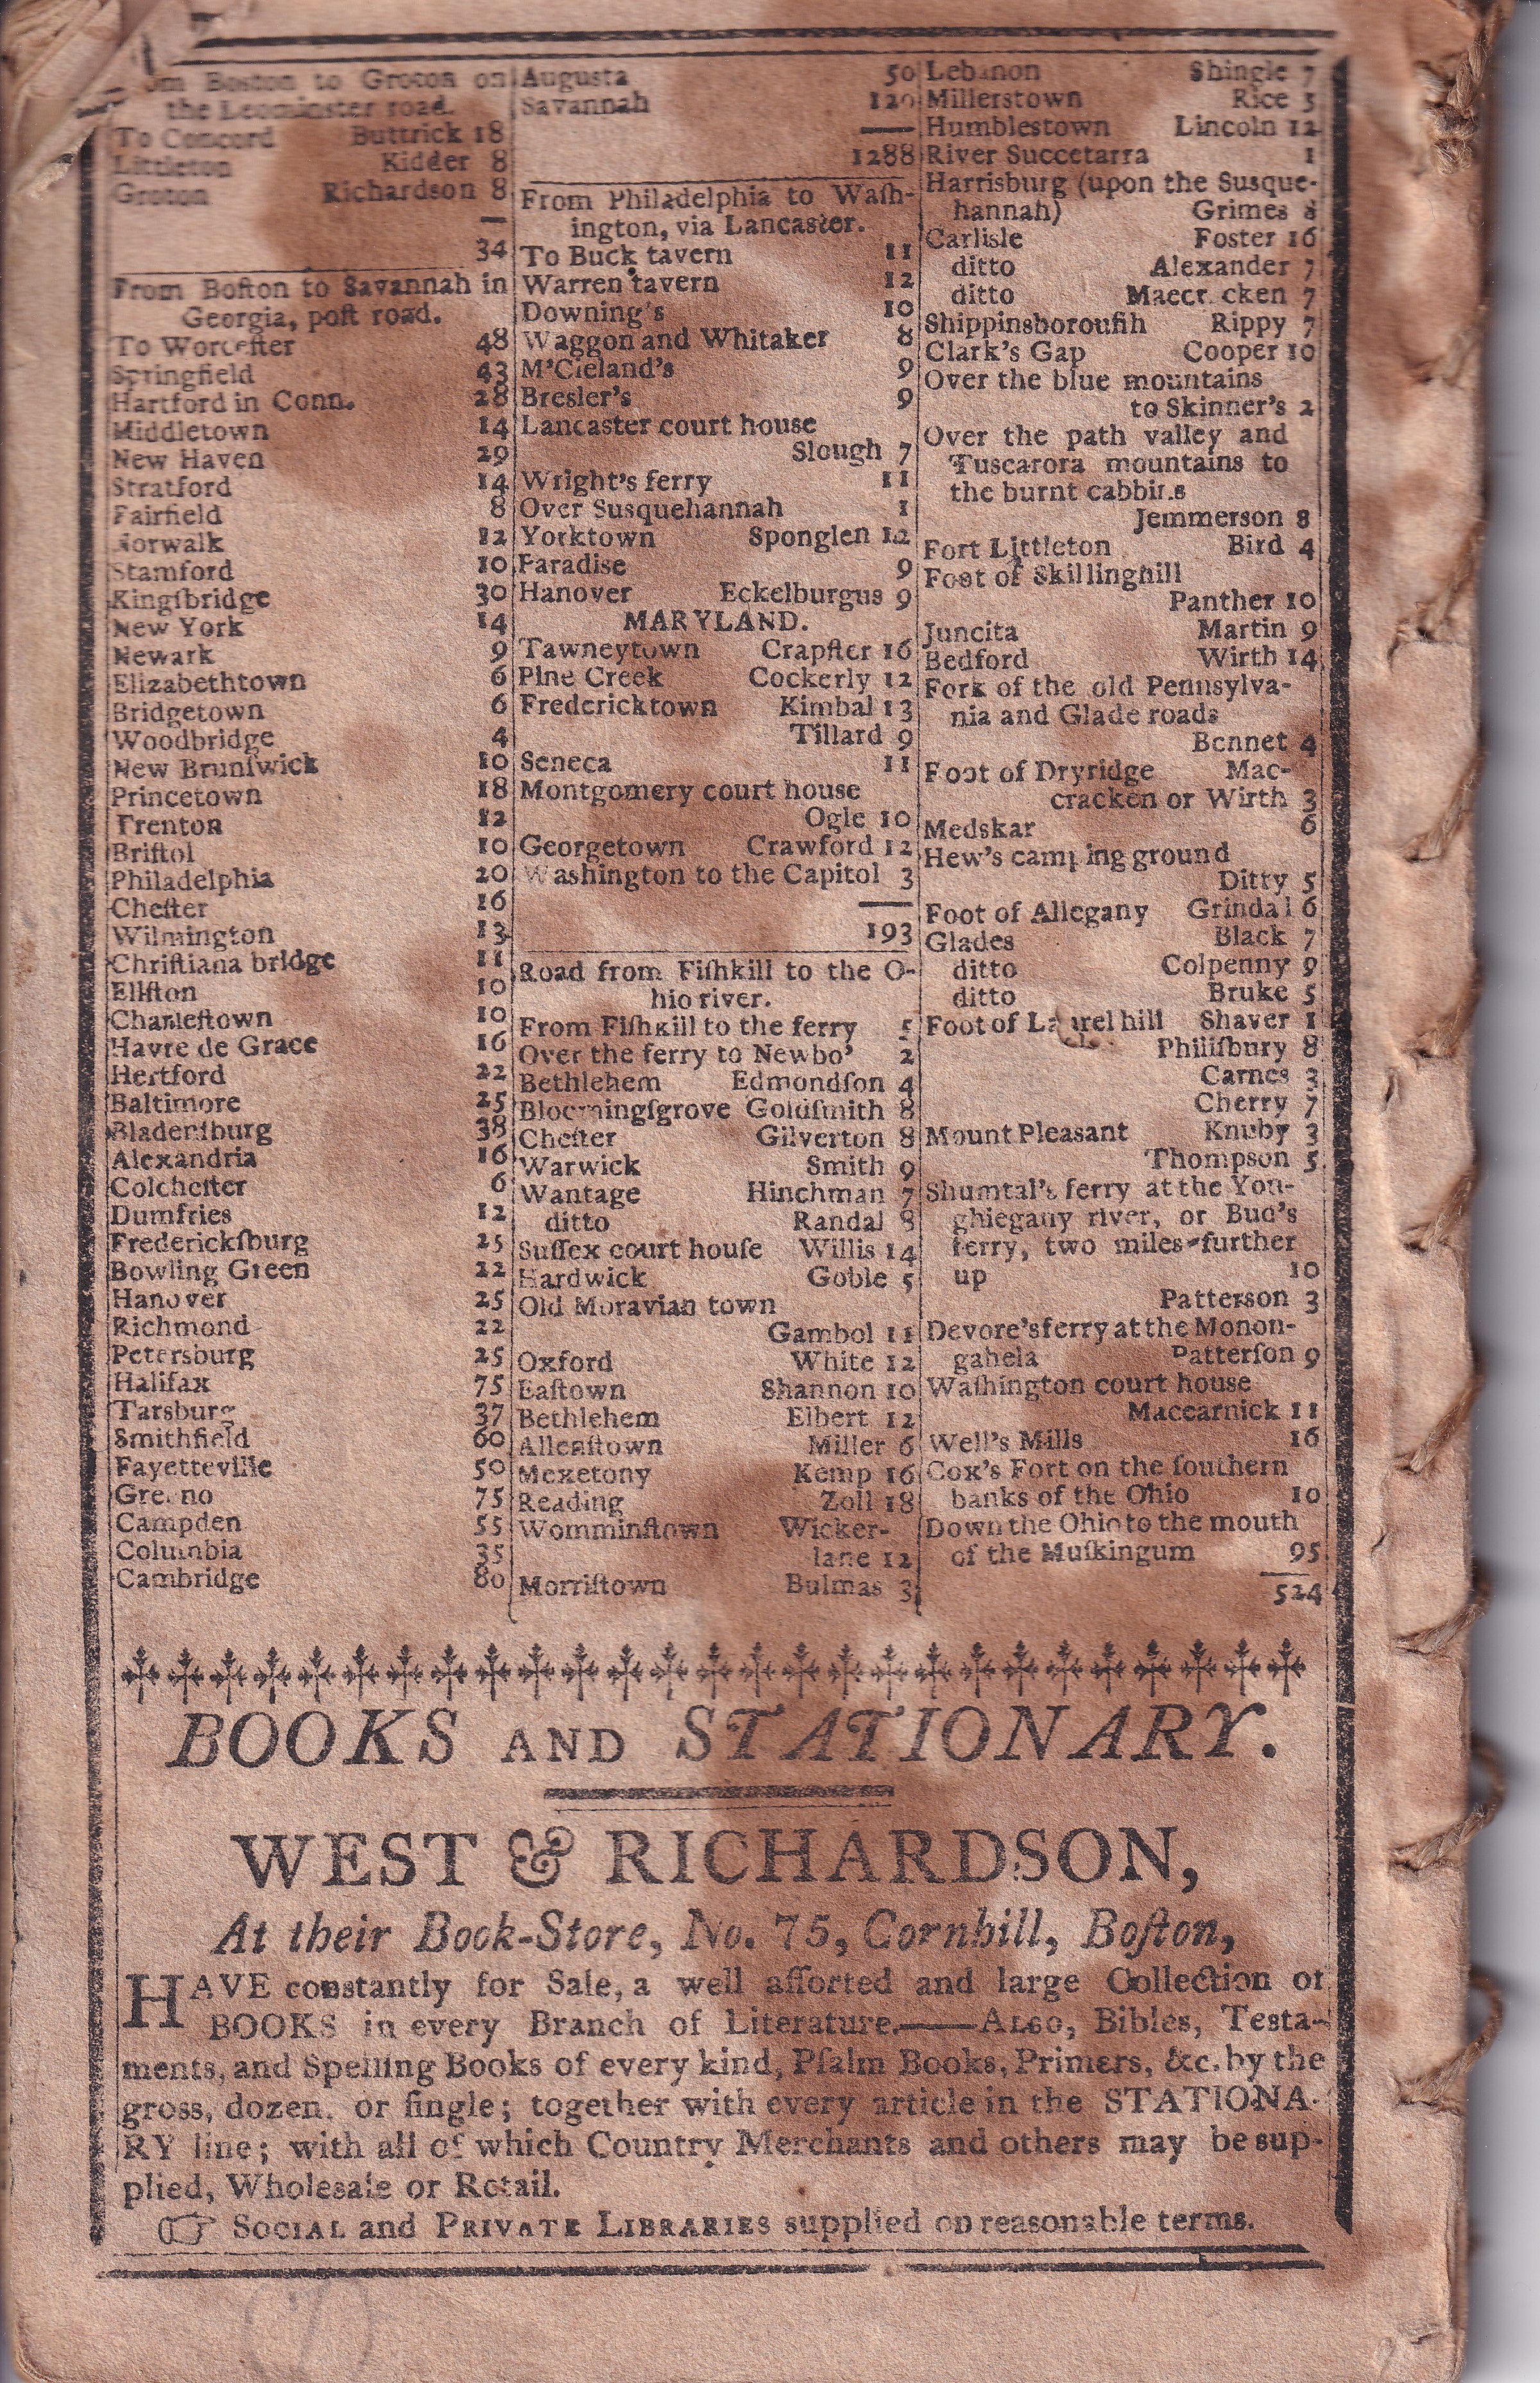 Boston to Groton on
the Leominster road.
To Concord Buttrick 18
Littleton Kidder 8
Groton Richardson 8
34
From Boſton to Savannah in
Georgia, poſt road.
To Worceſter 48
Springfield 43
Hartford in Conn. 28
Middletown 14
New Haven 29
Stratford 14
Fairfield 8
Norwalk 12
Stamford 10
Kingſbridge 30
New York 14
Newark 9
Elizabethtown 6
Bridgetown 6
Woodbridge 4
New Brunſwick 10
Princetown 18
Trenton 12
Briſtol 10
Philadelphia 20
Cheſter 16
Wilmington 13
Chriſtiana bridge 11
Elkton 10
Charleſtown 10
Havre de Grace 16
Hertford 22
Baltimore 25
Bladenſburg 38
Alexandria 16
Colcheſter 6
Dumfries 12
Frederickſburg 25
Bowling Green 22
Hanover 25
Richmond 22
Petersburg 25
Halifax 75
Tarsburg 37
Smithfield 60
Fayetteville 50
75
Campden 55
Columbia 35
Cambridge 80
Augusta 50
Savannah 120
1288
From Philadelphia to Waſh-
ington, via Lancaster.
To Buck tavern 11
Warren tavern 12
Downing's 10
Waggon and Whitaker 8
M'Cleland's 9
Bresler's 9
Lancaster court house
Slough 7
Wright's ferry 11
Over Susquehannah 1
Yorktown Sponglen 12
Paradise 9
Hanover Eckelburgus 9
MARYLAND.
Tawneytown Crapſter 16
Pine Creek Cockerly 12
Fredericktown Kimbal 13
Tillard 9
Seneca 11
Montgomery court house
Ogle 10
Georgetown Crawford 12
Washington to the Capitol 3
193
Road from Fiſhkill to the O-
hio river.
From Fiſhkill to the ferry 5
Over the ferry to Newbo' 2
Bethlehem Edmondſon 4
Bloomingſgrove Goldſmith 8
Cheſter Gilverton 8
Warwick Smith 9
Wantage Hinchman 7
ditto Randal 8
Suſſex court houſe Willis 14
Hardwick Goble 5
Old Moravian town
Gambol 11
Oxford White 12
Eaſtown Shannon 10
Bethlehem Elbert 12
Allenſtown Miller 6
Mexetony Kemp 16
Reading Zoll 18
Womminſtown Wicker-
lane 12
Morriſtown Bulmas 3
Lebanon Shingle 7
Millerstown Rice 5
Humblestown Lincoln 12
River Succetarra 1
Harrisburg (upon the Susque-
hannah) Grimes 8
Carlisle Foster 16
ditto Alexander 7
ditto 7
Shippinsboroufih Rippy 7
Clark's Gap Cooper 10
Over the blue mountains
to Skinner's 2
Over the path valley and
Tuscarora mountains to
the burnt cabbins
Jemmerson 8
Fort Littleton Bird 4
Foot of Skillinghill
Panther 10
Juncita Martin 9
Bedford Wirth 14
Fork of the old Pennsylva-
nia and Glade roads
Bennet 4
Foot of Dryridge Mac-
cracken or Wirth 3
Medskar 6
Hew's camping ground
Ditty 5
Foot of Allegany Grindal 6
Glades Black 7
ditto Colpenny 9
ditto Bruke 5
Foot of Laurel hill Shaver 1
Philiſbury 8
Carnes 3
Cherry 7
Mount Pleasant Knuby 3
Thompson 5
Shumtal's ferry at the Yon-
ghiegany river, or Bud's
ferry, two miles further
up 10
Patterson 3
Devore's ferry at the Monon-
gahela Patterſon 9
Waſhington court house
Maccarnick 11
Well's Mills 16
Cox's Fort on the ſouthern
banks of the Ohio 10
Down the Ohio to the mouth
of the Muſkingum 95
524
BOOKS AND STATIONARY.
WEST & RICHARDSON,
At their Book-Store, No. 75, Cornhill, Boſton,
HAVE constantly for Sale, a well aſſorted and large Collection of
BOOKS in every Branch of Literature.——ALSO, Bibles, Testa-
ments, and Spelling Books of every kind, Pſalm Books, Primers, &c. by the
gross, dozen, or ſingle; together with every article in the STATIONA-
RY line; with all of which Country Merchants and others may be sup-
plied, Wholesale or Retail.
☞ SOCIAL and PRIVATE LIBRARIES supplied on reasonable terms.